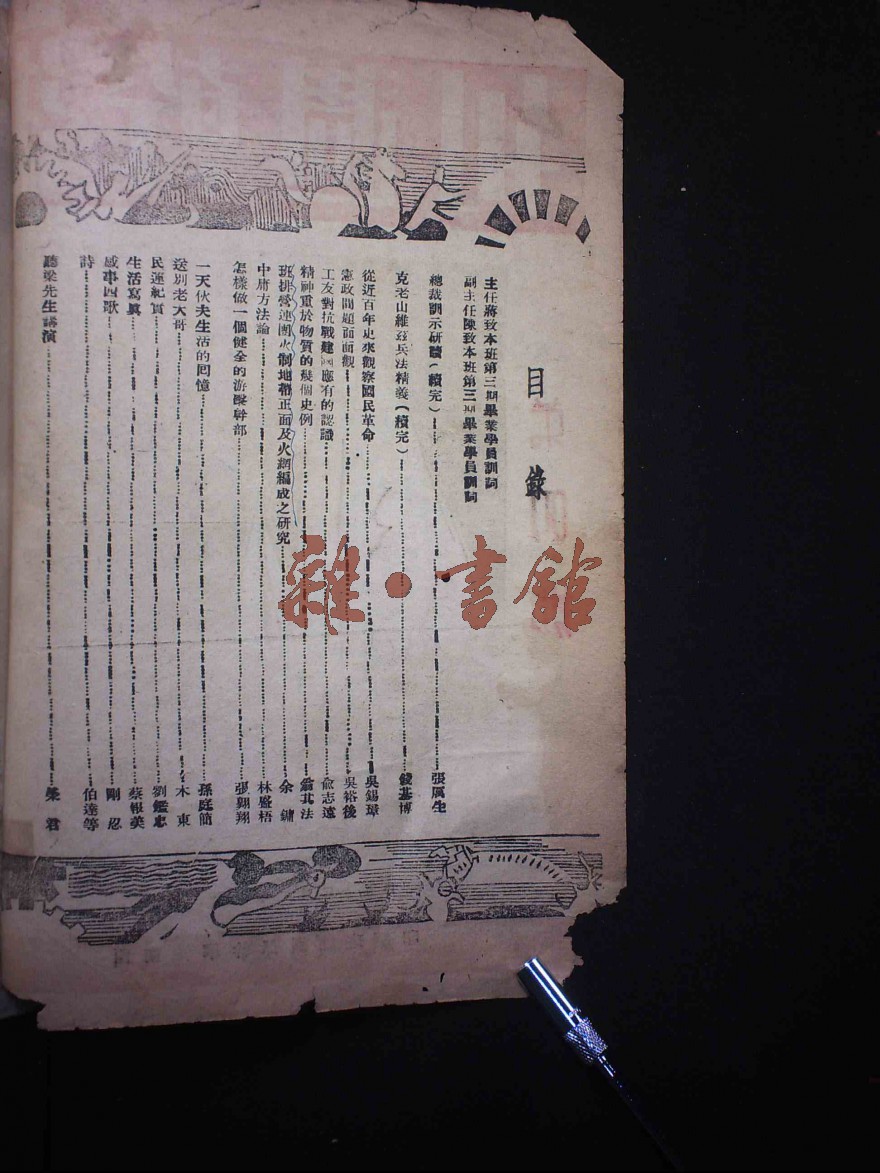 目錄
主任蔣致本班第三期畢業學員訓詞
副主任陳致本班第三期畢業學員訓詞
總裁訓示研讀(續完)……張厲生
克老山維茲兵法精義(續完)……錢基博
從近百年史來觀察國民革命……吳錫璋
憲政問題面面觀……吳裕後
工友對抗戰建國應有的認識……俞志遠
精神重於物質的幾個史例……翁其法
班排營連團火制地帶正面及火網編成之研究……余鏞
中庸方法論……林盛梧
怎樣做一個健全的游擊幹部……張翱翔
一天伙夫生活的回憶……孫庭簡
送別老大哥……木東
民運紀實……劉鑑忠
生活寫眞……蔡報美
感事四歌……剛忍
詩……伯達等
聽梁先生講演……榮君
雜·書館